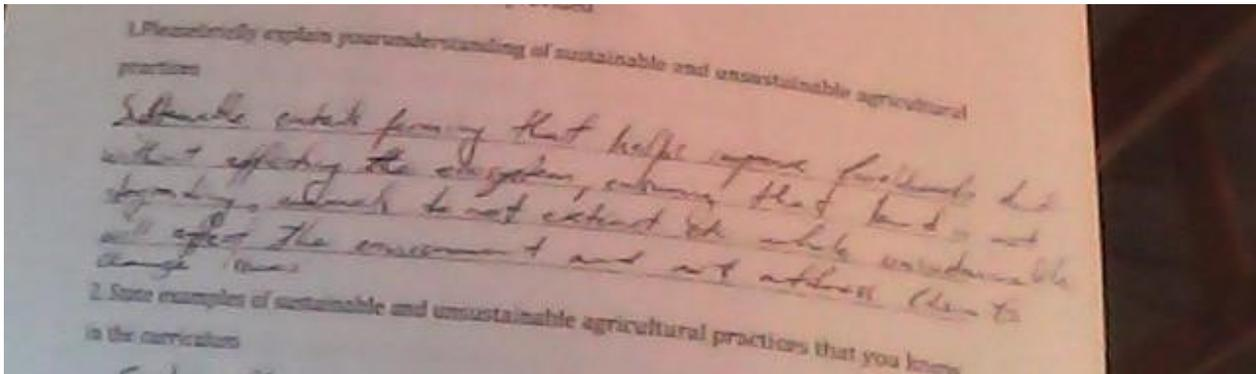 1.Pleasebriefly explain yourunderstanding of sustainable and unsustainable agricultural
practices
Sustainable entails farming that helps improve livelihoods but
without affecting the ecosystem, ensuring that land is not
animals do not extinct etc while unsustainable
will affect the environment and not address climate
change issues
2. State examples of sustainable and unsustainable agricultural practices that you know
in the curriculum